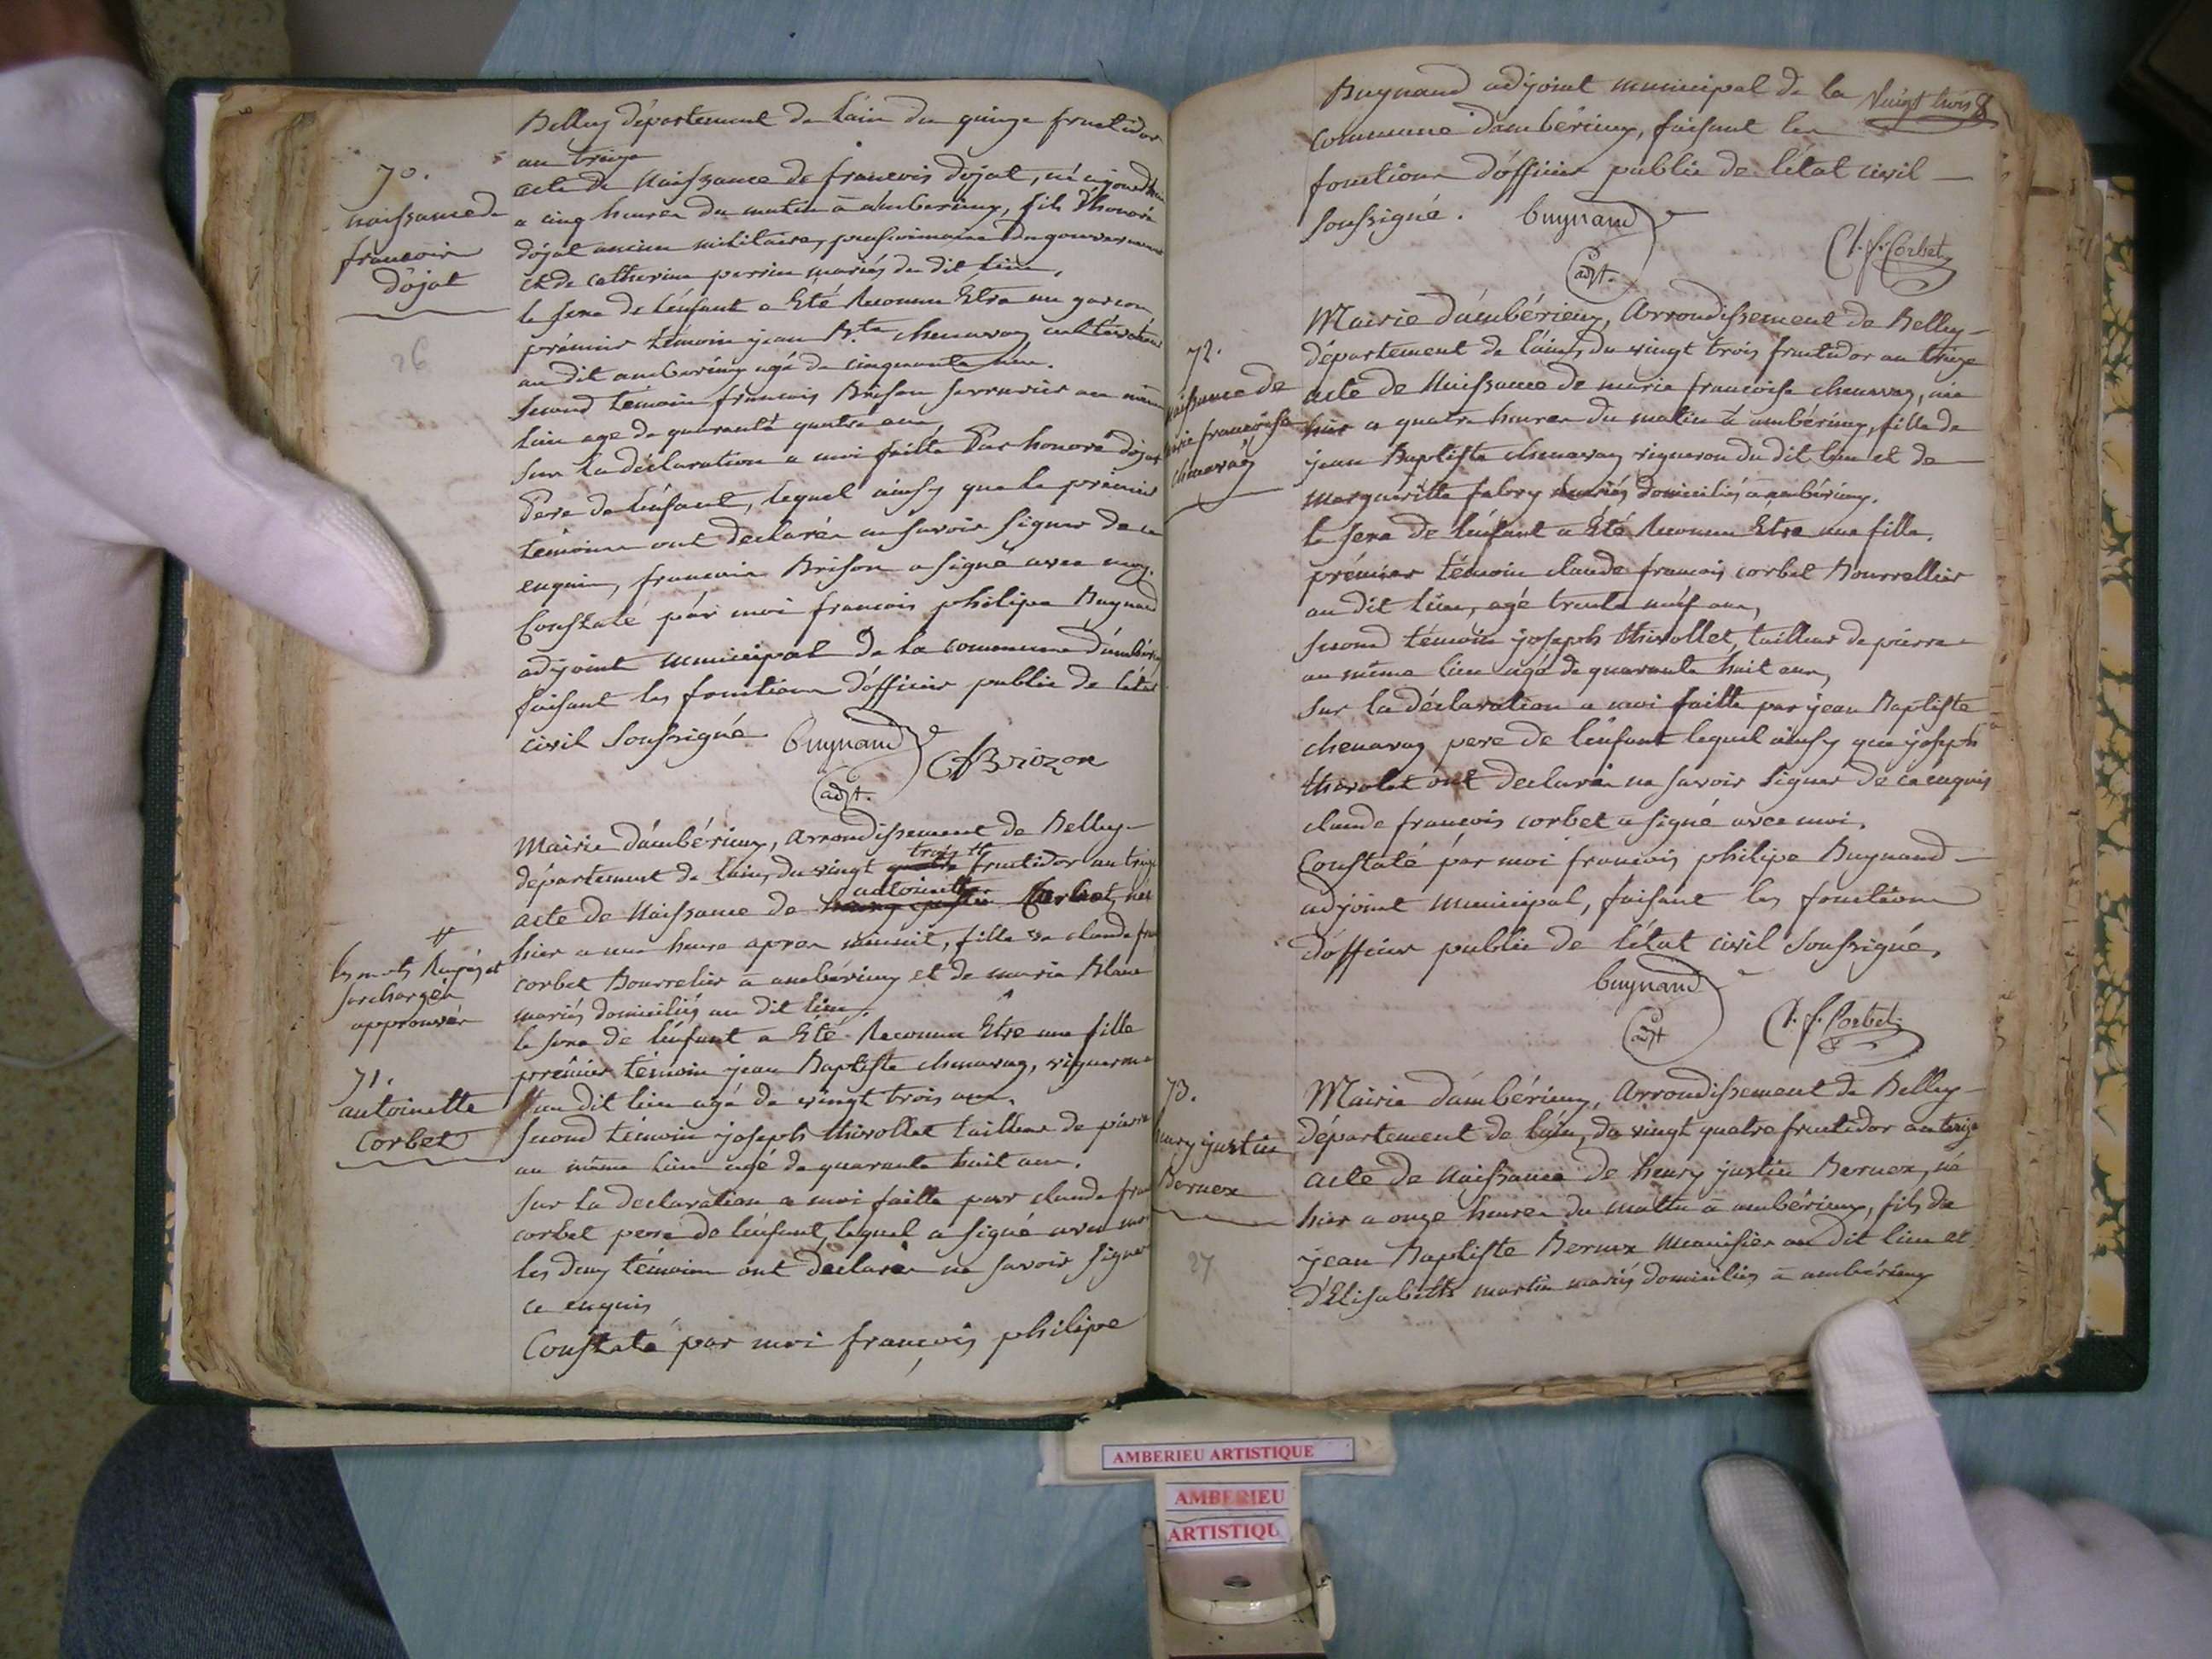 Belley département de l'ain du quinze fructidor
an treize
70.
naissance de
francois
dojat
26
acte de Naissance de francois dojat, né aujourdhui
a cinq heures du matin a ambérieux, fils d'honoré
dojat ancien militaire, pensionnaire du gouvernement
et de catherine perrin mariés du dit lieu,
le sexe de l'enfant a Eté Reconnu Etre un garcon,
prémier témoin jean Bte chenavaz cultivateur
au dit ambérieux agé de cinquante ans.
second témoin francois Brison serrurier au même
lieu age de quarante quatre ans
sur la déclaration a moi faitte Par honoré dojat
Pere de l'enfant, lequel ainsy que le premier
témoin ont declarés ne savoir signer de ce
enquis, francois Brison a signé avec moy.
Constaté par moi francois philipe Buynand
adjoint municipal de la commune d'ambérieux
faisant les fonctions d'officier public de l'état
civil soussigné. buynand
adjt. Brizon
Mairie d'ambérieux, arrondissement de Belley
trois #
département de l'ain, du vingt quatre fructidor an treize
antoinette
acte de Naissance de henry justin Corbet, née
hier a une heure apres minuit, fille de claude fran
corbet Bourrelier a ambérieux et de marie Blanc
mariés domiciliés au dit lieu.
#
les mots Rayés et
surchargés
approuvés
le sexe de l'enfant a Eté Reconnu Etre une fille
prémier témoin jean Baptiste chenavaz, vigneron
71.
antoinette
Corbet
au dit lieu agé de vingt trois ans.
second témoin joseph thivollet tailleur de pierre
au même lieu agé de quarante huit ans.
sur la declaration a moi faitte par claude fran
corbet pere de l'enfant, lequel a signé avec moi
les deux témoins ont declarés ne savoir signer
ce enquis
Constaté par moi françois philipe
Buynand adjoint municipal de la Vingt trois
commune d'ambérieux, faisant les
fonctions d'officier public de l'état civil
soussigné. buynand
adjt. C. f. Corbet
Mairie d'ambérieux, Arrondissement de Belley
département de l'ain, du vingt trois fructidor an treize
72.
naissance de
marie francoise
chenavaz
acte de Naissance de marie francoise chenavaz, née
hier a quatre heures du matin à ambérieux, fille de
jean Baptiste chenavaz vigneron du dit lieu et de
margueritte fabry mariés domiciliés a ambérieux.
le sexe de l'enfant a Eté Reconnu Etre une fille.
prémier témoin claude francois corbet Bourrellier
au dit lieu, agé trente neuf ans,
second témoin joseph thivollet, tailleur de pierre
au même lieu agé de quarante huit ans,
sur la déclaration a moi faitte par jean Baptiste
chenavaz pere de l'enfant lequel ainsy que joseph
thivolet ont declarés ne savoir signer de ce enquis
claude francois corbet a signé avec moi.
Constaté par moi francois philipe Buynand
adjoint municipal, faisant les fonctions
d'officier public de l'état civil soussigné.
buynand
adjt C. f. Corbet
Mairie d'ambérieux, Arrondissement de Belley
département de l'ain, du vingt quatre fructidor an treize
73.
henry justin
Bernox
27
acte de Naissance de henry justin Bernox, né
hier a onze heures du matin a ambérieux, fils de
jean Baptiste Bernox menuisier au dit lieu et
d'Elisabeth martin mariés domiciliés à ambérieux
AMBERIEU ARTISTIQUE
AMBERIEU
ARTISTIQU